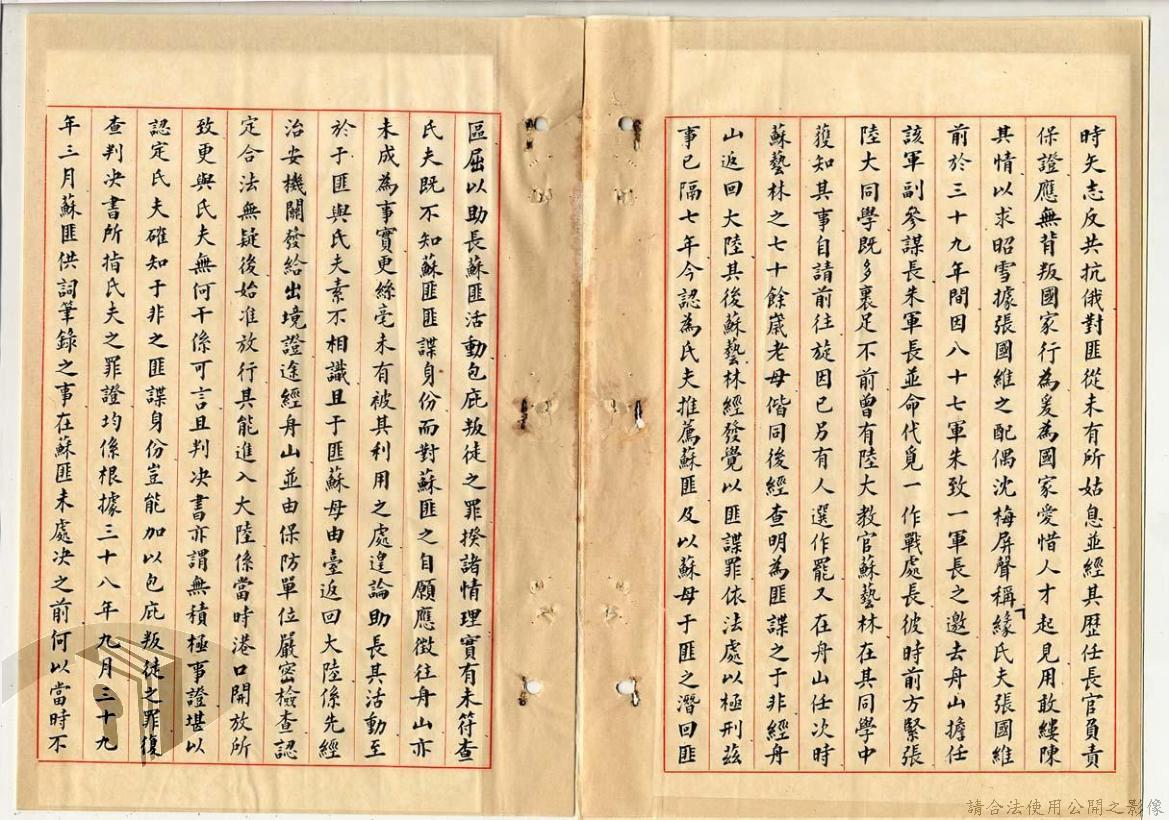 時矢志反共抗俄對匪從未有所姑息並經其歷任長官負責
保證應無背叛國家行為爰為國家愛惜人才起見用敢縷陳
其情以求昭雪據張國維之配偶沈梅屏聲稱「緣氏夫張國維
前於三十九年間因八十七軍朱致一軍長之邀去舟山擔任
該軍副參謀長朱軍長並命代覓一作戰處長彼時前方緊張
陸大同學既多裹足不前曾有陸大教官蘇藝林在其同學中
獲知其事自請前往旋因已另有人選作罷又在舟山任次時
蘇藝林之七十餘歲老母偕同後經查明為匪諜之于非經舟
山返回大陸其後蘇藝林經發覺以匪諜罪依法處以極刑茲
事已隔七年今認為氏夫推薦蘇匪及以蘇母于匪之潛回匪
區屈以助長蘇匪活動包庇叛徒之罪揆諸情理實有未符查
氏夫既不知蘇匪匪諜身份而對蘇匪之自願應徵往舟山亦
未成為事實更絲毫未有被其利用之處遑論助長其活動至
於于匪與氏夫素不相識且于匪蘇母由臺返回大陸係先經
治安機關發給出境證途經舟山並由保防單位嚴密檢查認
定合法無疑後始准放行其能進入大陸係當時港口開放所
致更與氏夫無何干係可言且判決書亦謂無積極事證堪以
認定氏夫確知于非之匪諜身份豈能加以包庇叛徒之罪復
查判決書所指氏夫之罪證均係根據三十八年九月三十九
年三月蘇匪供詞筆錄之事在蘇匪未處決之前何以當時不
請合法使用公開之影像